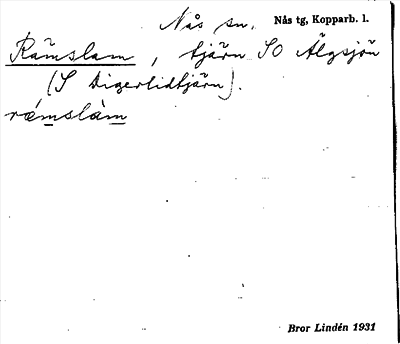 Nås sn. Nås tg, Kopparb. l.
Råmslam, tjärn SO Älgsjön
(S Digerlidtjärn).
ræ´mslàm
Bror Lindén 1931